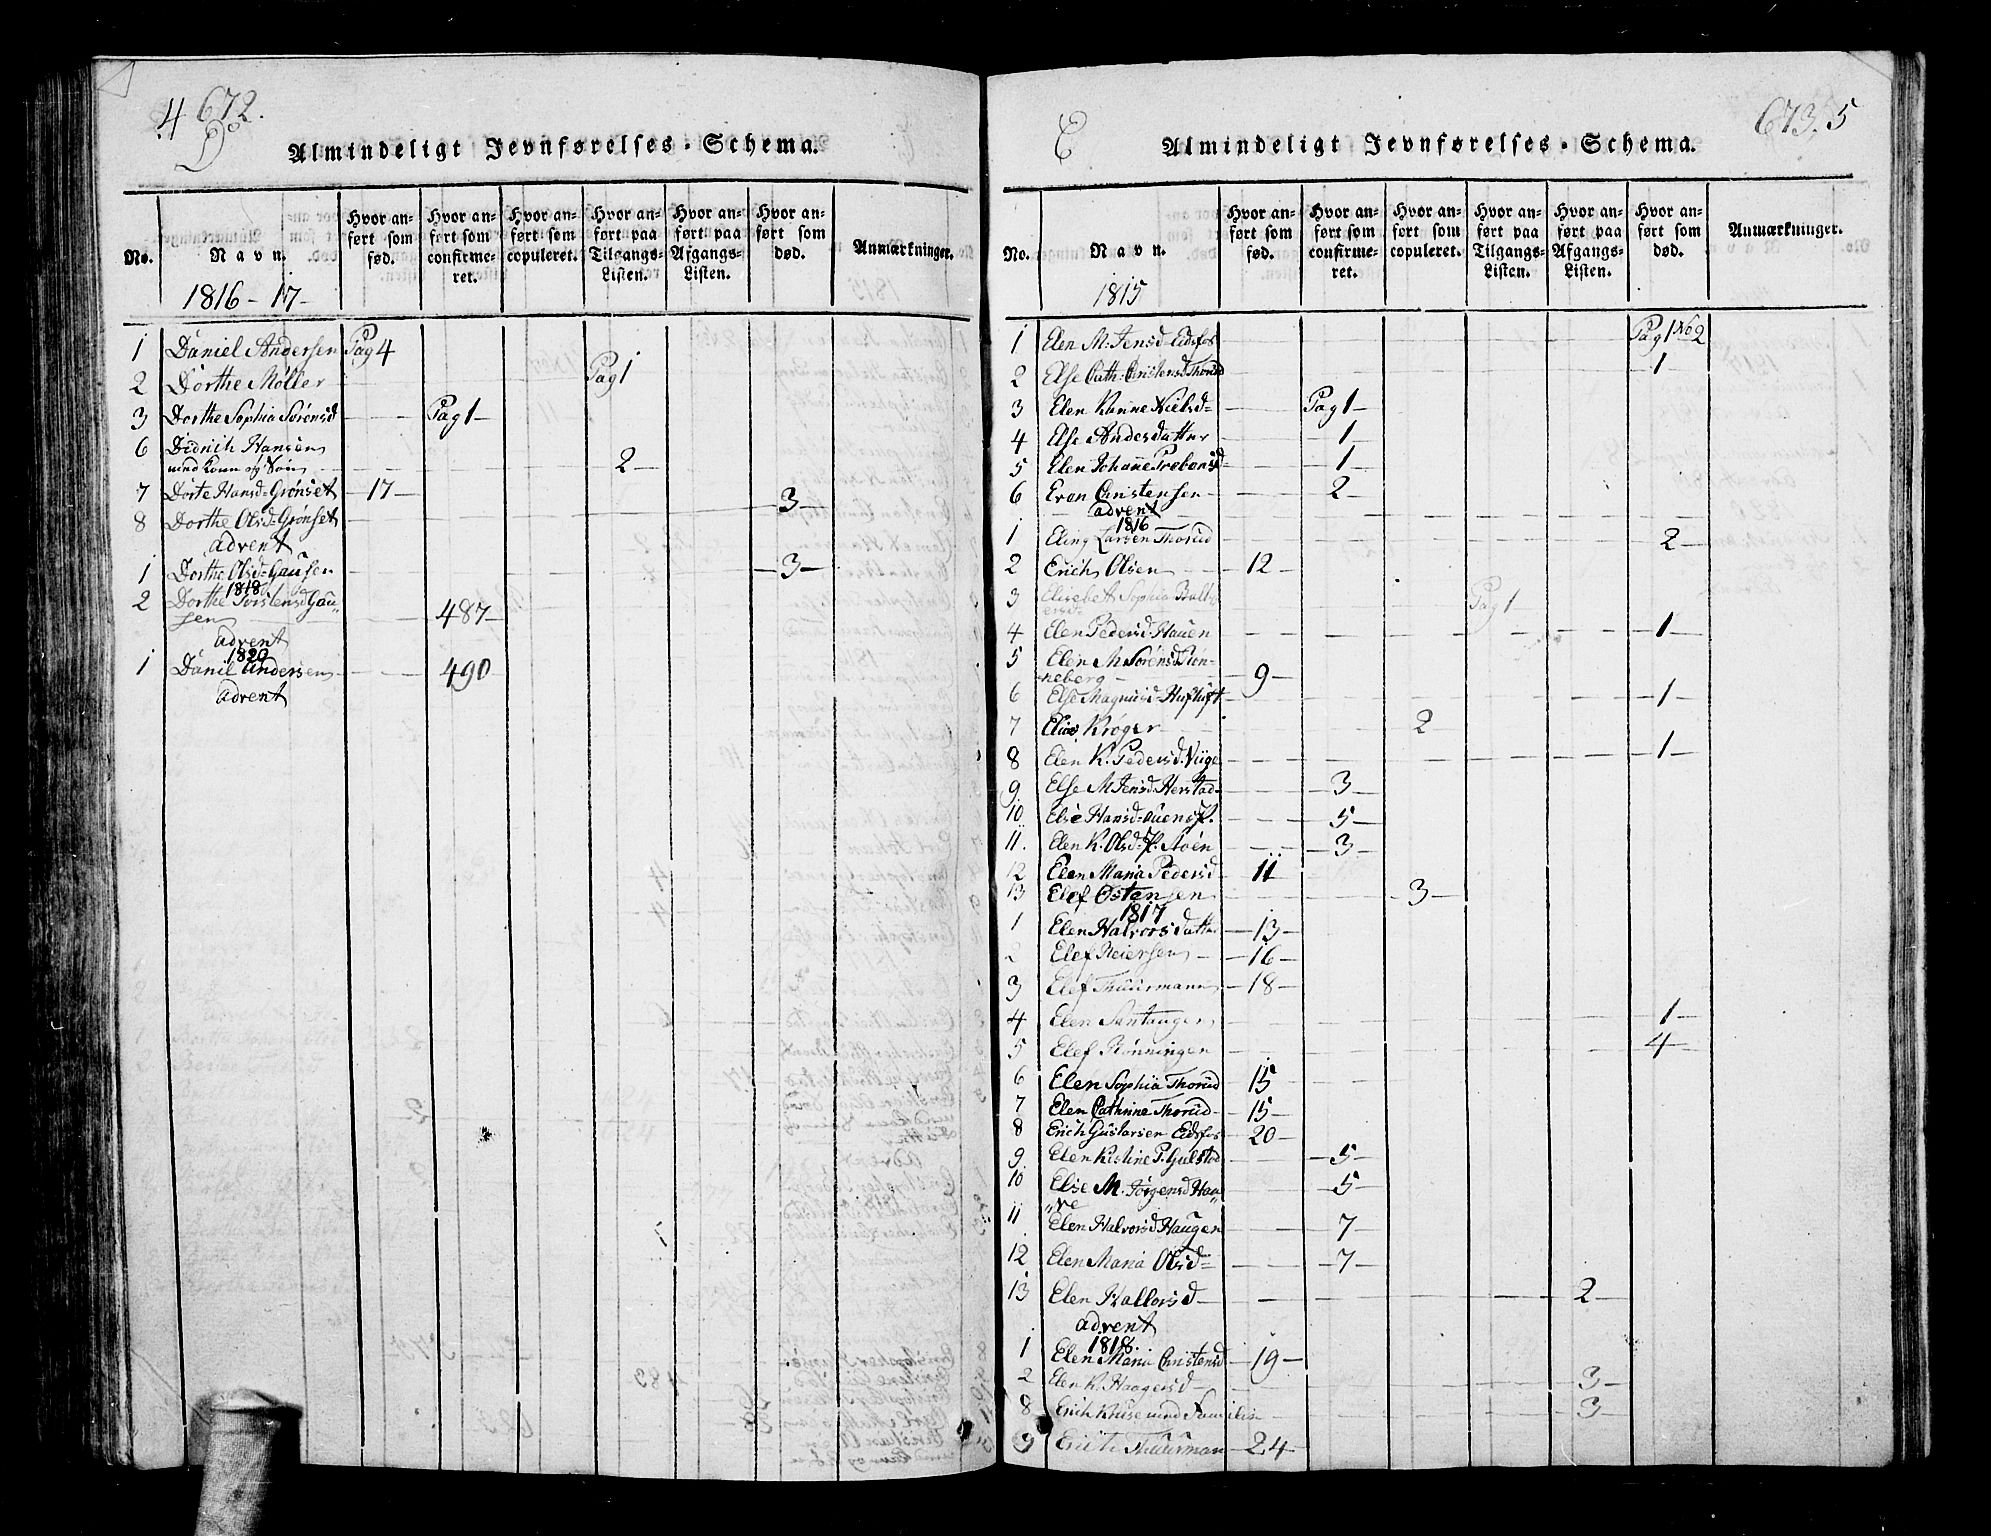 4 672.
D
Almindeligt Jevnførelses-Schema.
No. Navn. Hvor anført som fød. Hvor anført som confirmeret. Hvor anført som copuleret. Hvor anført paa Tilgangs-Listen. Hvor anført paa Afgangs-Listen. Hvor anført som død. Anmærkninger.
1816-17-
1 Daniel Andersen Pag 4
2 Dorthe Møller Pag 1
3 Dorthe Sophia Sørensd Pag 1
6 Didrich Hansen
med Kone og Søn 2
7 Dorte Hansd Grønset 17
8 Dorthe Olsd Grønset 3
advent
1 Dorthe Olsd Gausen 3
1818
2 Dorthe Torstensd Gau
sen 487
advent
1820
1 Danil Andersen 490
advent
673. 5
E
Almindeligt Jevnførelses-Schema.
No. Navn. Hvor anført som fød. Hvor anført som confirmeret. Hvor anført som copuleret. Hvor anført paa Tilgangs-Listen. Hvor anført paa Afgangs-Listen. Hvor anført som død. Anmærkninger.
1815
1 Elen M: Jensd Eidsfos Pag 1 No 2
2 Else Cath: Christensd Thorud 1
3 Elen Karine Nielsd Pag 1
4 Else Andersdatter 1
5 Elen Johane Prebensd 1
6 Even Christensen 2
advent
1816
1 Eling Larsen Thorud 2
2 Erich Olsen 12
3 Elisebet Sophia Balt
ersd Pag 1
4 Elen Pedersd Hauen 1
5 Elen M Sørensd Røn
neberg 9
6 Else Magnusd 1
7 Elias Krøger 2
8 Elen K. Pedersd Viige 1
9 Else M Jensd Herstad 3
10 Else Hansd 5
11. Elen K. Olsd 3
12 Elen Maria Pedersd 11
13 Elef Ostensen 3
1817
1 Elen Halvorsdatter 13
2 Elef Reiersen 16
3 Elef Thuurmann 18
4 Elen 1
5 Elef Rønningen 4
6 Elen Sophia Thorud 15
7 Elen Cathrine Thorud 15
8 Erich Gustavsen Eidsfos 20
9 Elen Kistine P. Gulstad 5
10 Else M. Jørgensd Hau
ve 5
11 Elen Halvorsd Haugen 7
12 Elen Maria Olsd 7
13 Elen Hallorsd 2
advent
1818.
1 Elen Maria Christensd 19
2 Elen K. Haagersd 3
8 Erich Kruse med Familie 3
9 Erich Thuurman 24